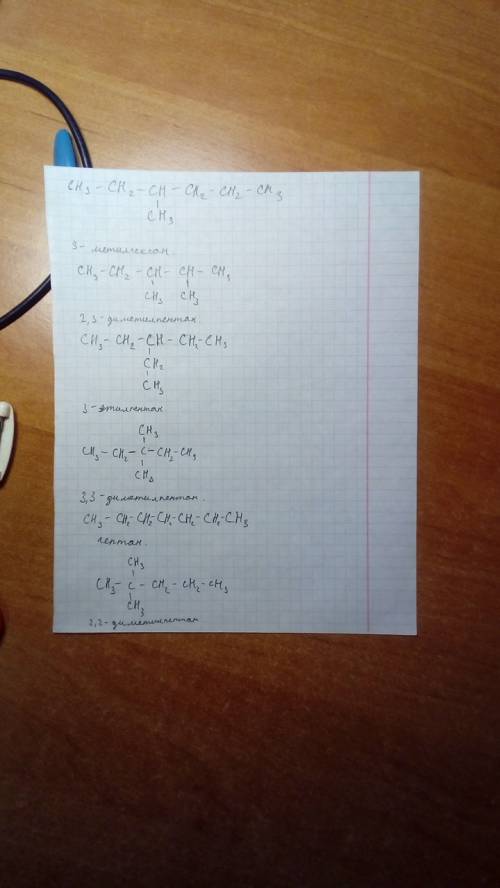 CH3 - CH2 - CH - CH2 - CH2 - CH3
CH3
3 - метилгексан.
CH3 - CH2 - CH - CH - CH3
CH3 CH3
2,3 - диметилпентан.
CH3 - CH2 - CH - CH2 - CH3
CH2
CH3
3 - этилпентан
CH3
CH3 - CH2 - C - CH2 - CH3
CH3
3,3 - диметилпентан.
CH3 - CH2 - CH2 - CH2 - CH2 - CH2 - CH3
гептан.
CH3
CH3 - C - CH2 - CH2 - CH3
CH3
2,2 - диметилпентан